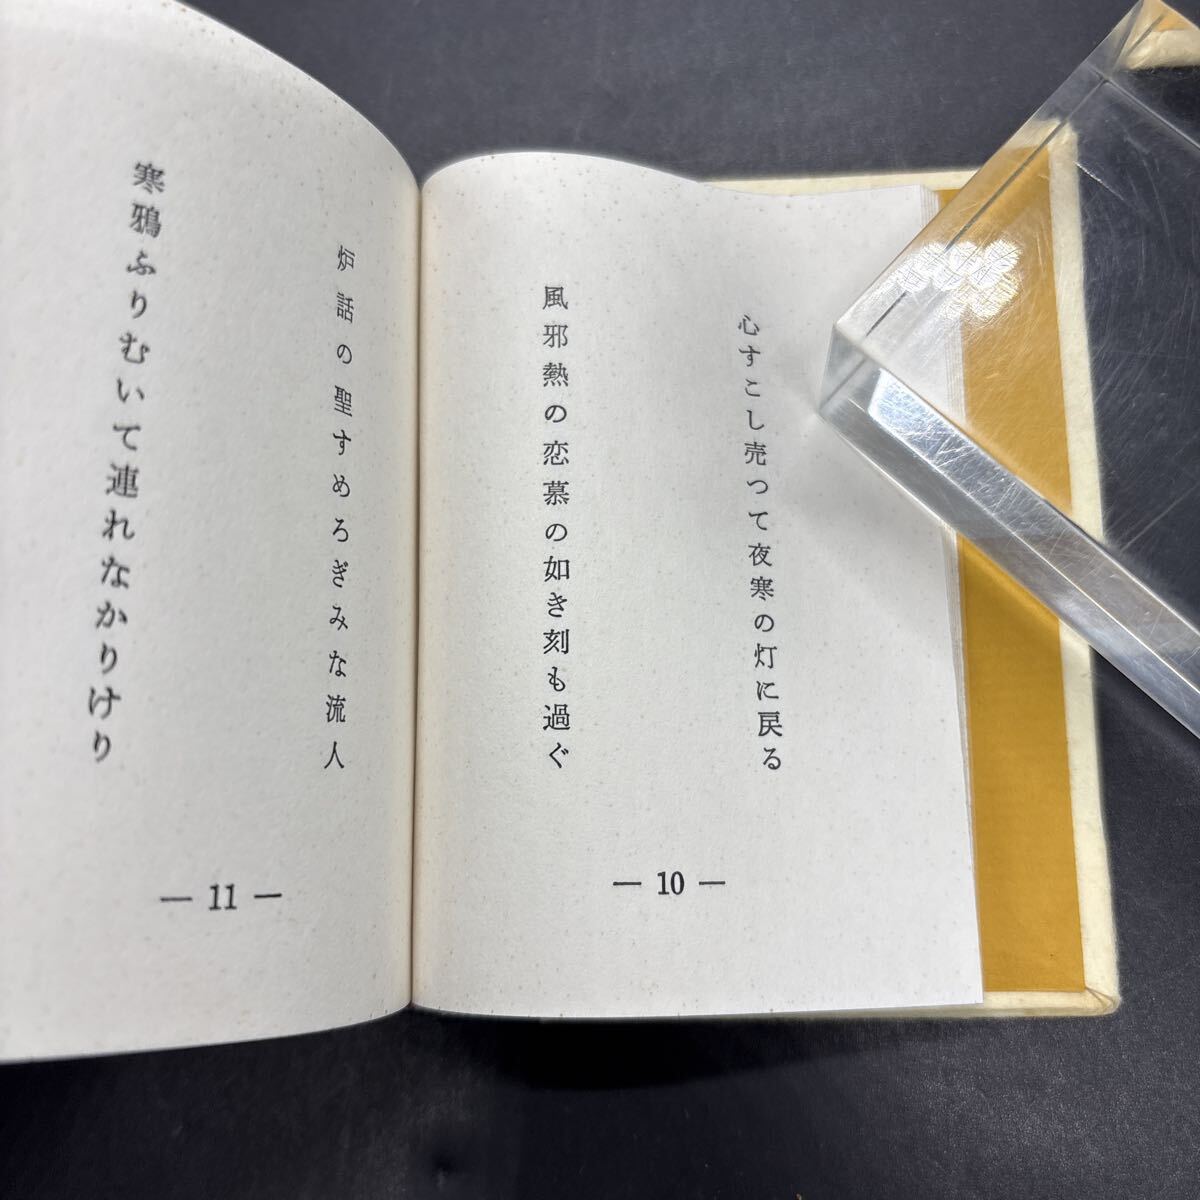 心すこし売つて夜寒の灯に戻る
風邪熱の恋慕の如き刻も過ぐ
— 10 —
炉話の聖すめろぎみな流人
寒鴉ふりむいて連れなかりけり
— 11 —